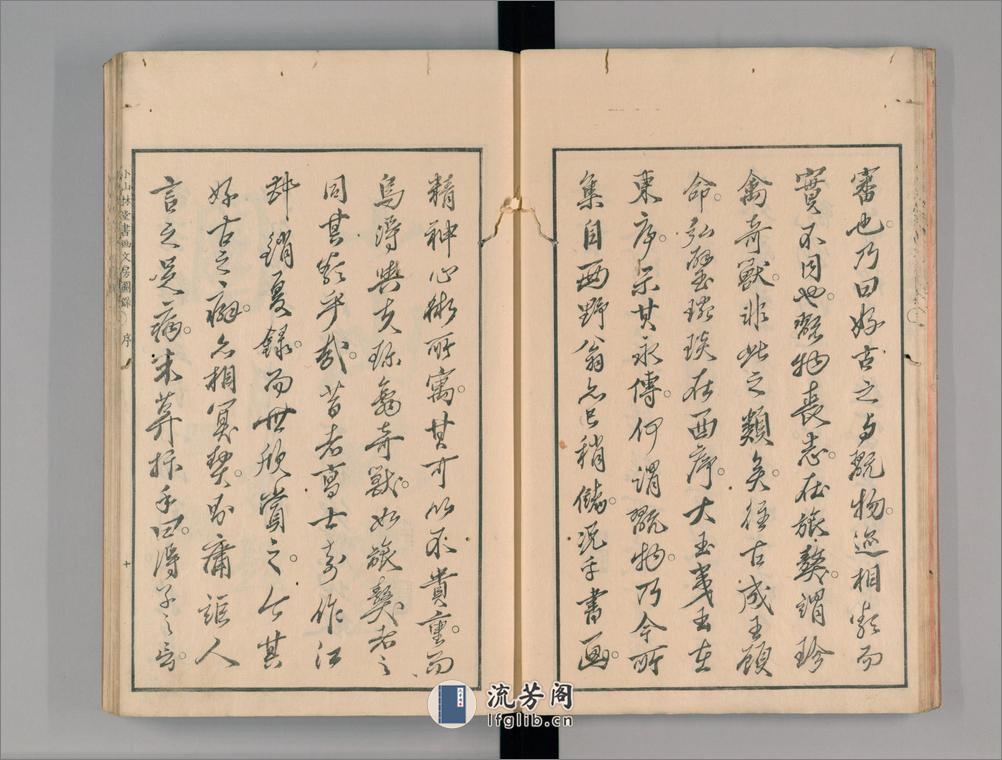 審也。乃曰好古之与翫物。迩相類而
實不同也。翫物喪志。在旅獒。謂珍
禽奇獸。非此之類矣。徃古成王顧
命。弘璧琬琰在西序。大玉夷玉在
東序。示其永傳。何謂翫物。乃今所
集自西野翁亦已稍儲。況乎書画。
精神心術所寓。其可以不貴重。而
烏得與夫珍禽奇獸。如旅獒者之
同其類乎哉。昔者高士奇作江
邨銷夏録。而世欣賞之。今其
好古之癖。亦相冥契。易庸詎人
言之足病。米葊抃手曰。得子之言。
小山林堂書画文房圖録
序
十
流芳阁
lfglib.cn